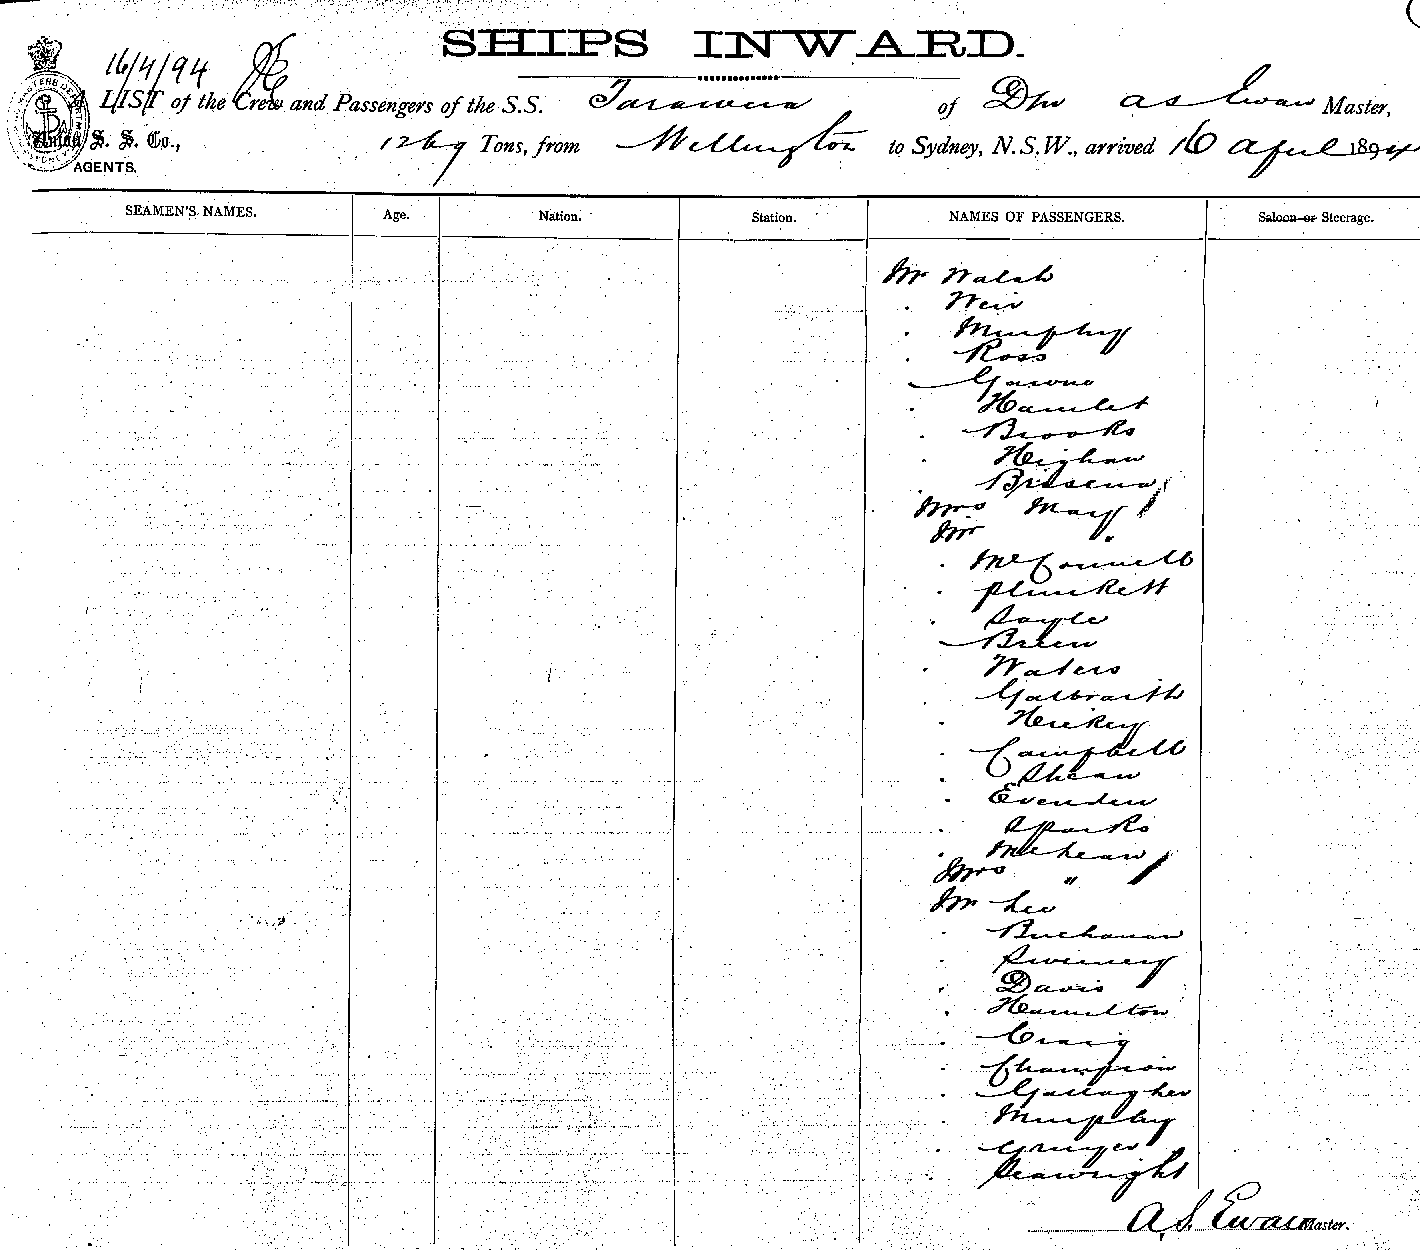 SHIPS INWARD.
16/4/94
A LIST of the Crew and Passengers of the S.S. Tarawera of Dn A S Ewan Master,
Union S. S. Co., 1269 Tons, from Wellington to Sydney, N.S.W., arrived 16 April 1894
AGENTS.
SEAMEN'S NAMES. Age. Nation. Station. NAMES OF PASSENGERS. Saloon or Steerage.
Mr Walsh
. Weir
. Murphy
. Ross
. Hamlet
. Brooks
. Higham
Mrs Mary
Mr "
. McConnell
. Plunkett
. Doyle
Breen
. Waters
. Galbraith
. Hickey
. Campbell
. Shean
. Evenden
. Sparks
. McLean
Mrs "
Mr Lee
. Buchanan
. Sweeney
. Davis
. Hamilton
. Craig
. Champion
. Gallagher
. Murphy
. Seawright
A. S. Ewan Master.